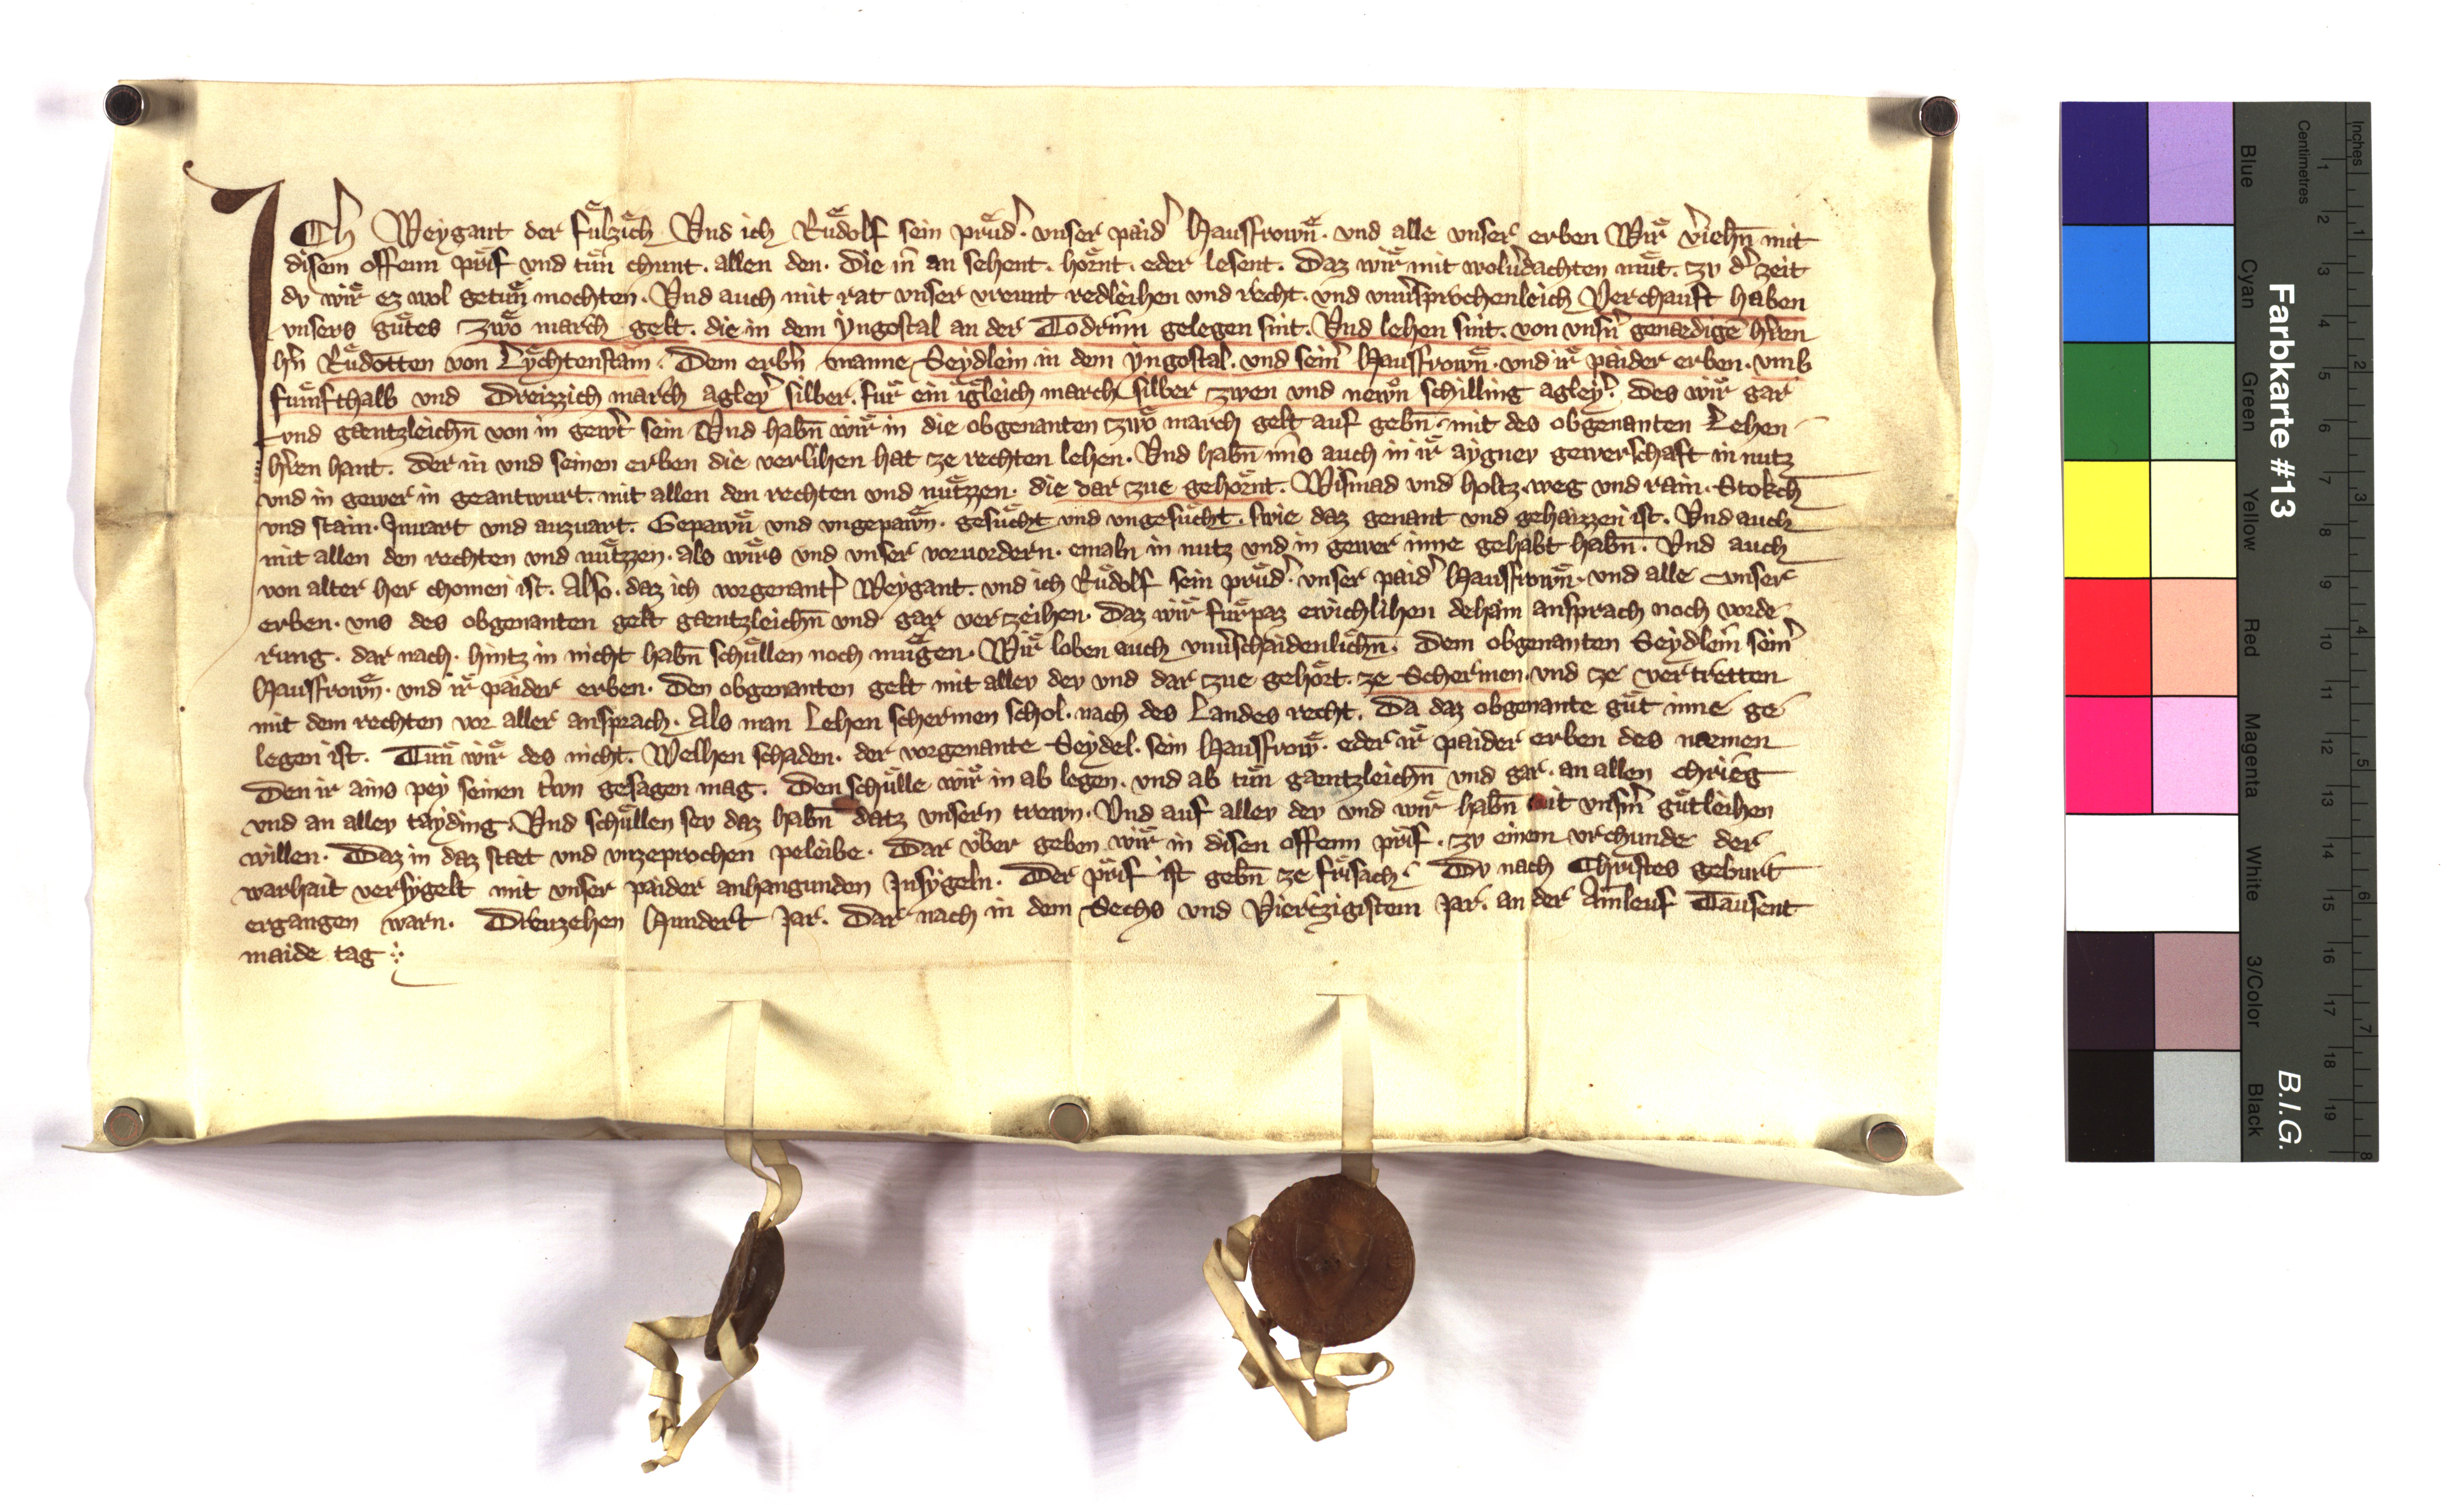 ICh Weygant der fuͤlzich Vnd ich Ruͤdolf sein pruͤd̾. vnser paid̾ Hausfrowͤn. vnd alle vnser erben Wir v̾iehn̄ mit
disem offenn prif vnd tuͤn chunt. allen den. die in an sehent. hoͤrnt. eder lesent. Daz wir mit wolv̾dachten muͤt. zv d̾ zeit
dv wir ez wol getuͤn mochten. Vnd auch mit rat vnser vreunt redleihen vnd recht. vnd vnu̾sprochenleich Verchauft haben
vnsers guͤtes zwo march gelt. die in dem Yngostal an der Todrinn gelegen sint. Vnd lehen sint. von vnsn̾ genaedigē hr̾en
hn̾ Ruͤdotten von Lychtenstain. Dem erbn̾ manne Seydlein in dem yngostal. vnd sein̾ Hausfrowͤn. vnd ir paider erben. vmb
fuͤmfthalb vnd Dreizzich march agley̾ silber. fuͤr ein igleich march silber zwen vnd newͤn schilling agley̾. des wir gar
vnd gaentzleichn̄ von in gew̾t sein Vnd habn̄ wir in die obgenanten zwo march gelt auf gebn̄ mit des obgenanten Lehen
hr̾en hant. der in vnd seinen erben die verlihen hat ze rechten lehen. Vnd habn̄ uns auch in ir aygnev gewerschaft in nutz
vnd in gewer in geantwurt. mit allen den rechten vnd nuͤtzzen. die dar zue gehoͤrnt. Wismad vnd holtz. weg vnd rain. Stokch
vnd stain. Innart vnd auzwart. Gepawͤn vnd vngepawͤn. gesuͤcht vnd vngesuͤcht. swie daz genant vnd gehaizzen ist. Vnd auch
mit allen den rechten vnd nuͤtzzen. als wirs vnd vnser vorvordern. emaln in nutz vnd in gewer inne gehabt habn̄. Vnd auch
von alter her chomen ist. Also. daz ich vorgenant̾ Weygant. vnd ich Ruͤdolf sein pruͤd̾. vnser paid̾ Hausfrowͤn. vnd alle vnser
erben. vns des obgenanten gelt gaentzleichn̄ vnd gar ver zeihen. Daz wir fuͤrpaz ewichlihen dehain ansprach noch vorde
rung. dar nach. hintz in nicht habn̄ schuͤllen noch muͤgen. Wir loben auch vnu̾schaidenlichn̄. Dem obgenanten Seydlein sein̾
Hausfrowͤn. vnd ir paider erben. Den obgenanten gelt mit allev dev vnd dar zue gehoͤrt. ze Schermen. vnd ze vertretten
mit dem rechten vor aller ansprach. Als man Lehen schermen schol. nach des Landes recht. Da daz obgenante guͤt inne ge
legen ist. Tuͤn wir des nicht. Welhen schaden. der vorgenante Seydel. sein Hausfrowͤ. eder ir paider erben des naemen
Den ir ains pey seinen tr̾wn gesagen mag. Den schuͤlle wir in ab legen. vnd ab tuͤn gaentzleichn̄ vnd gar. an allen chrieg
vnd an allev tayding. Vnd schuͤllen sev daz habn̄ datz vnsern trewn. Vnd auf allev dev vnd wir habn̄ mit vnsm̾ guͤtleihen
willen. Daz in daz staet vnd vnzeprochen peleibe. Dar vͤber geben wir in disen offenn prif. zv einem vrchunde der
warhait versygelt mit vnser paider anhangunden Insygeln. Der prif ist gebn̄ ze frisach. Dv nach Christes geburt
ergangen warn. Drevzehen Hundert Jar. Dar nach in dem Sechs vnd Viertzigistem Jar. an der Ainleuf Tausent
maide tag
Farbkarte #13
B.I.G.
Inches 1 2 3 4 5 6 7 8
Centimetres 1 2 3 4 5 6 7 8 9 10 11 12 13 14 15 16 17 18 19
Blue
Cyan
Green
Yellow
Red
Magenta
White
3/Color
Black